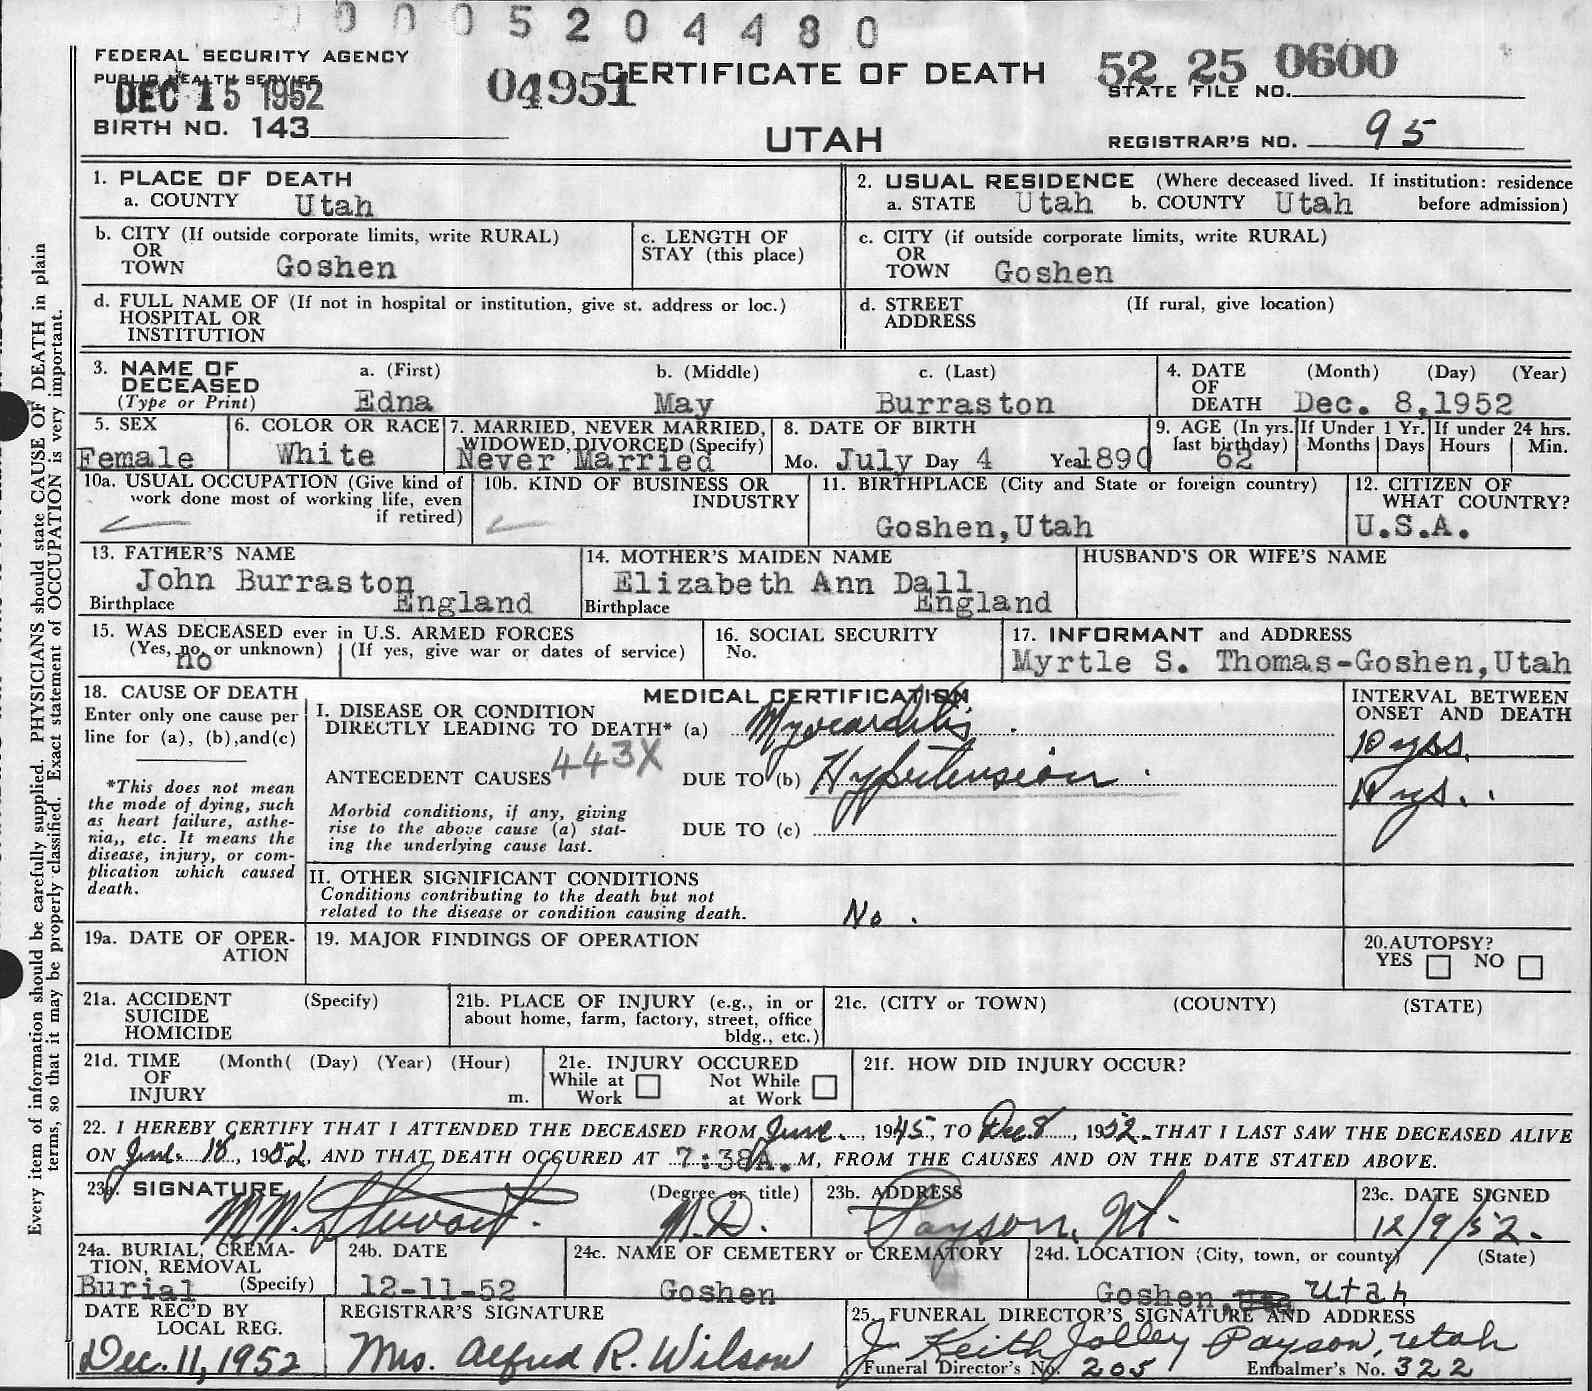 0005204480
FEDERAL SECURITY AGENCY
PUBLIC HEALTH SERVICE
DEC 15 1952
04951
CERTIFICATE OF DEATH
52 25 0600
STATE FILE NO.
BIRTH NO. 143
UTAH
REGISTRAR'S NO. 95
1. PLACE OF DEATH
a. COUNTY Utah
2. USUAL RESIDENCE (Where deceased lived. If institution: residence before admission)
a. STATE Utah b. COUNTY Utah
b. CITY (If outside corporate limits, write RURAL)
OR
TOWN Goshen
c. LENGTH OF
STAY (this place)
c. CITY (if outside corporate limits, write RURAL)
OR
TOWN Goshen
d. FULL NAME OF (If not in hospital or institution, give st. address or loc.)
HOSPITAL OR
INSTITUTION
d. STREET (If rural, give location)
ADDRESS
3. NAME OF
DECEASED
(Type or Print)
a. (First) b. (Middle) c. (Last)
Edna May Burraston
4. DATE (Month) (Day) (Year)
OF
DEATH Dec. 8,1952
5. SEX
Female
6. COLOR OR RACE
White
7. MARRIED, NEVER MARRIED,
WIDOWED, DIVORCED (Specify)
Never Married
8. DATE OF BIRTH
Mo. July Day 4 Year 1890
9. AGE (In yrs. last birthday)
62
If Under 1 Yr.
Months Days
If under 24 hrs.
Hours Min.
10a. USUAL OCCUPATION (Give kind of
work done most of working life, even
if retired)
10b. KIND OF BUSINESS OR
INDUSTRY
11. BIRTHPLACE (City and State or foreign country)
Goshen,Utah
12. CITIZEN OF
WHAT COUNTRY?
U.S.A.
13. FATHER'S NAME
John Burraston
Birthplace England
14. MOTHER'S MAIDEN NAME
Elizabeth Ann Dall
Birthplace England
HUSBAND'S OR WIFE'S NAME
15. WAS DECEASED ever in U.S. ARMED FORCES
(Yes, no, or unknown) (If yes, give war or dates of service)
no
16. SOCIAL SECURITY
No.
17. INFORMANT and ADDRESS
Myrtle S. Thomas-Goshen,Utah
18. CAUSE OF DEATH
Enter only one cause per
line for (a), (b),and(c)
*This does not mean
the mode of dying, such
as heart failure, asthe-
nia,, etc. It means the
disease, injury, or com-
plication which caused
death.
MEDICAL CERTIFICATION
I. DISEASE OR CONDITION
DIRECTLY LEADING TO DEATH* (a) Myocarditis
443X
ANTECEDENT CAUSES DUE TO (b) Hypertension
Morbid conditions, if any, giving
rise to the above cause (a) stat-
ing the underlying cause last.
DUE TO (c)
INTERVAL BETWEEN
ONSET AND DEATH
II. OTHER SIGNIFICANT CONDITIONS
Conditions contributing to the death but not
related to the disease or condition causing death.
No.
19a. DATE OF OPER-
ATION
19. MAJOR FINDINGS OF OPERATION
20.AUTOPSY?
YES NO
21a. ACCIDENT (Specify)
SUICIDE
HOMICIDE
21b. PLACE OF INJURY (e.g., in or
about home, farm, factory, street, office
bldg., etc.)
21c. (CITY or TOWN) (COUNTY) (STATE)
21d. TIME (Month( (Day) (Year) (Hour)
OF
INJURY m.
21e. INJURY OCCURED
While at Work Not While at Work
21f. HOW DID INJURY OCCUR?
22. I HEREBY CERTIFY THAT I ATTENDED THE DECEASED FROM June, 1945, TO Dec. 8, 1952. THAT I LAST SAW THE DECEASED ALIVE
ON June. 18, 1952, AND THAT DEATH OCCURED AT 7:38A.M, FROM THE CAUSES AND ON THE DATE STATED ABOVE.
23a. SIGNATURE (Degree or title)
M.W. Stewart. M.D.
23b. ADDRESS
Payson, Ut.
23c. DATE SIGNED
12/9/52.
24a. BURIAL, CREMA-
TION, REMOVAL
Burial (Specify)
24b. DATE
12-11-52
24c. NAME OF CEMETERY or CREMATORY
Goshen
24d. LOCATION (City, town, or county) (State)
Goshen, Utah
DATE REC'D BY
LOCAL REG.
Dec. 11, 1952
REGISTRAR'S SIGNATURE
Mrs. Alfred R. Wilson
25. FUNERAL DIRECTOR'S SIGNATURE AND ADDRESS
J. Keith Jolley Payson, Utah
Funeral Director's No. 205 Embalmer's No. 322
Every item of information should be carefully supplied. PHYSICIANS should state CAUSE OF DEATH in plain
terms, so that it may be properly classified. Exact statement of OCCUPATION is very important.